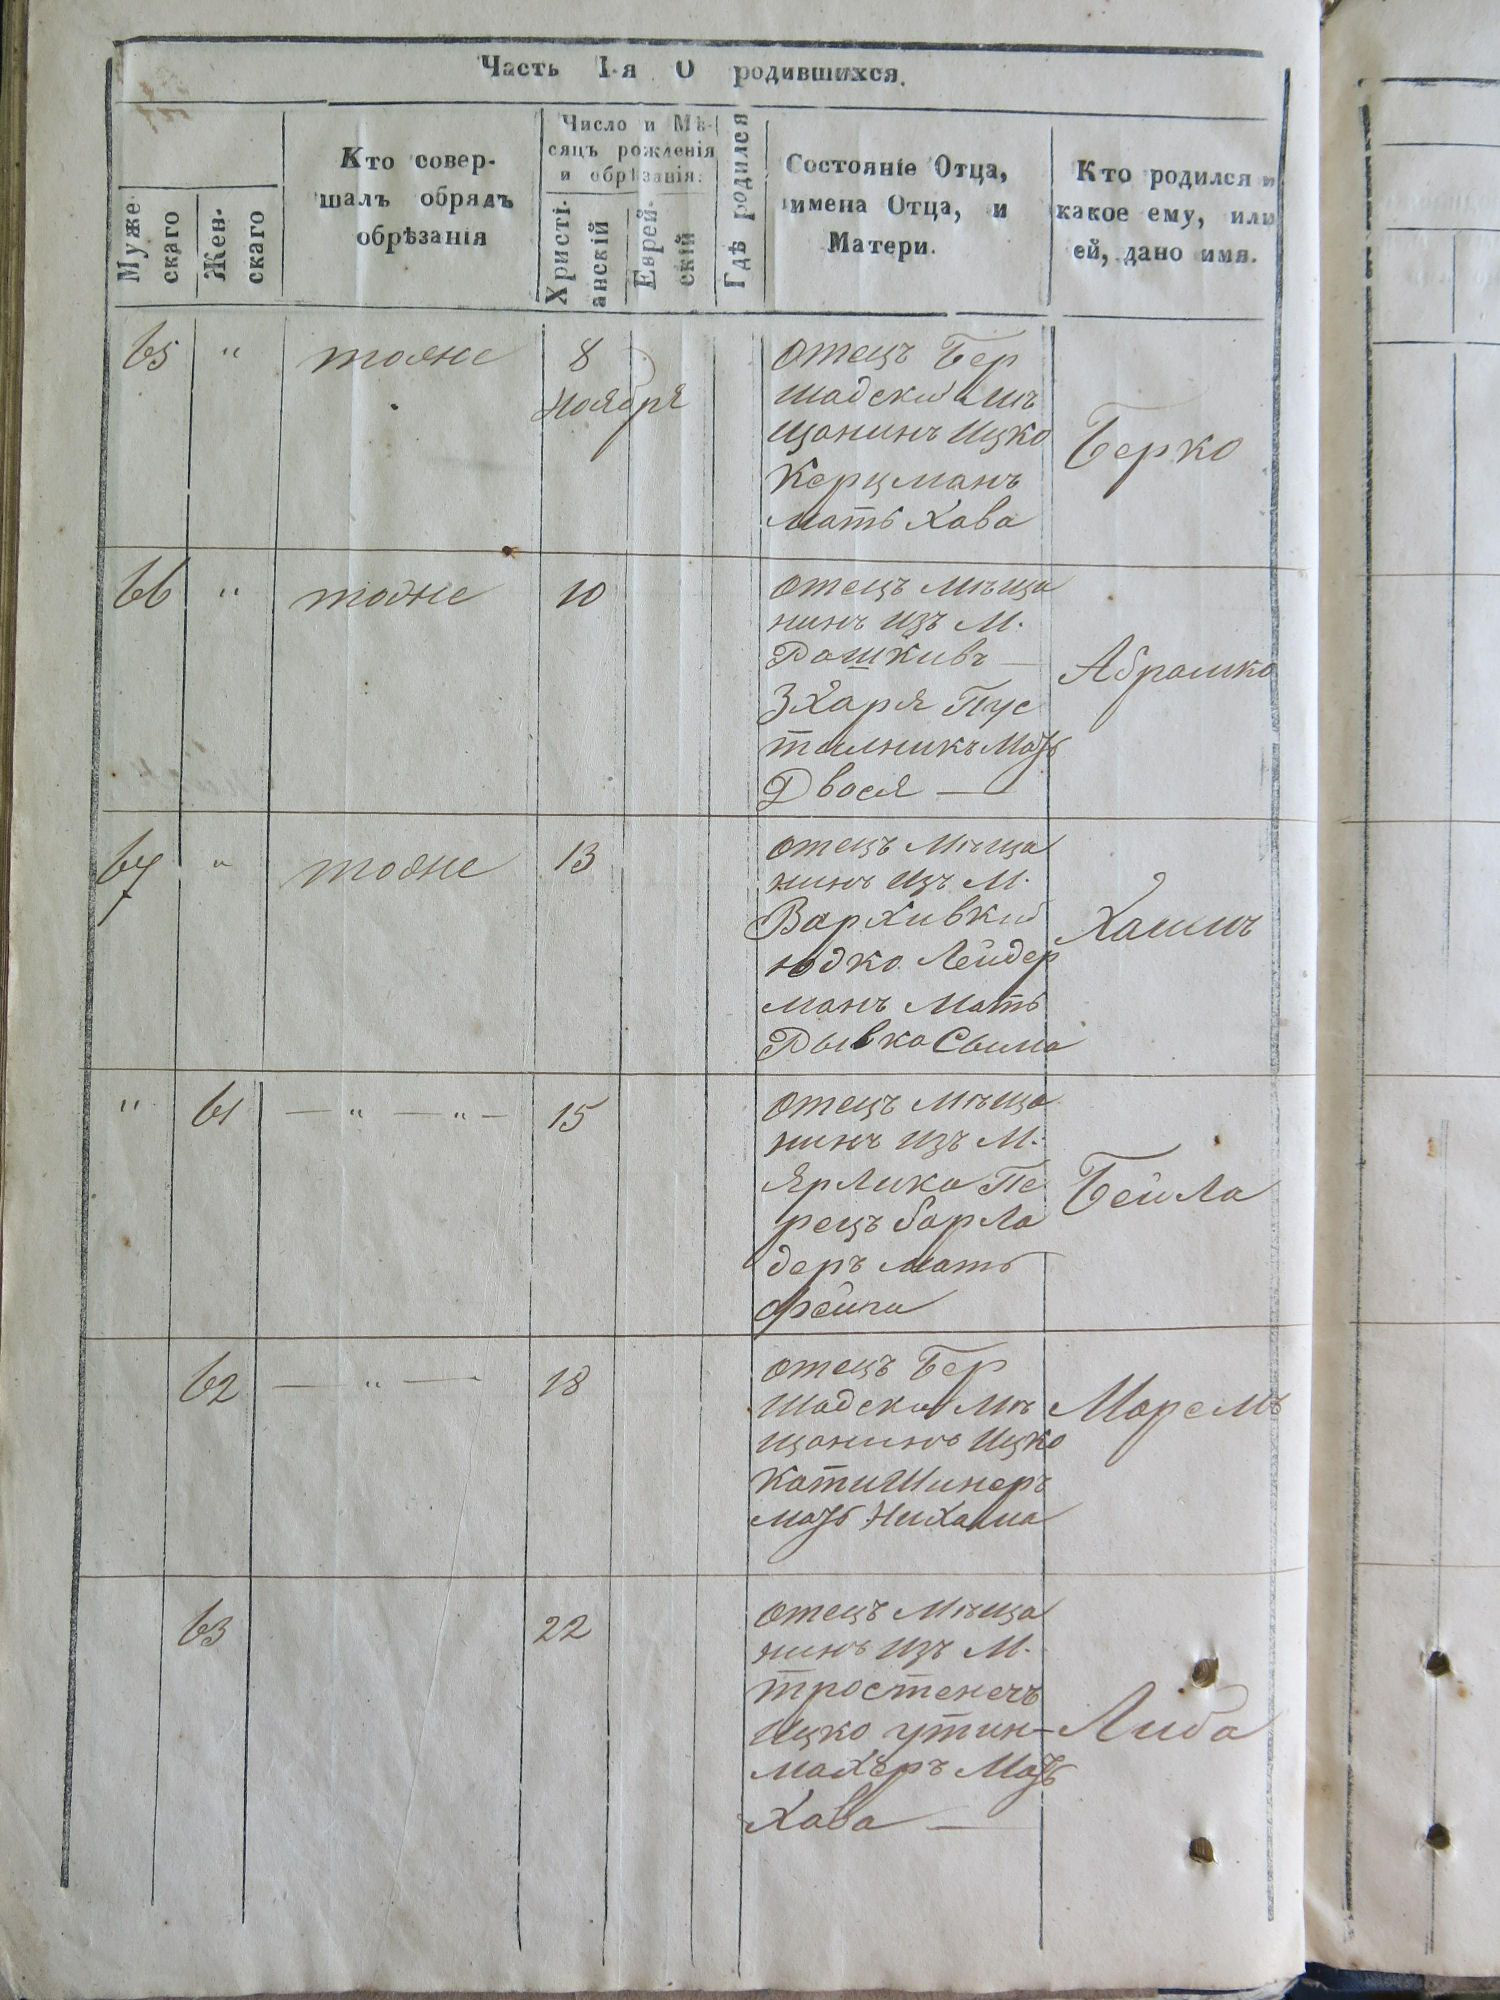 Часть I-я О родившихся.
Муже-
скаго
Жен-
скаго
Кто совер-
шалъ обрядъ
обрѣзанія
Число и Мѣ-
сяцъ рожденія
и обрѣзанія.
Христі-
анскій
Еврей-
скій
Гдѣ родился
Состояніе Отца,
имена Отца, и
Матери.
Кто родился и
какое ему, или
ей, дано имя.
65 " тоже 8
Ноября
отецъ Бер
шадскій мѣ
щанинъ Ицко
Керцманъ
мать Хава
Берко
66 " тоже 10
отецъ мѣща
нинъ изъ М.
Рашкивъ —
Зхаря Пус
тилникъ мать
Двося —
Абрамко
67 " тоже 13
отецъ мѣща
нинъ изъ М.
Вархивкий
Юдко Лейдер
манъ мать
Рывка Сыма
Хаимъ
" 61 — " — " — 15
отецъ мѣща
нинъ изъ М.
Ярлика Пе
рецъ барла
деръ мать
Фейга
Бейла
62 — " — 18
отецъ Бер
шадскій мѣ
щанинъ Ицко
мать Нихама
63 22
отецъ мѣща
нинъ изъ М.
тростенечъ
Ицко утин-
махеръ мать
Хава —
Либа